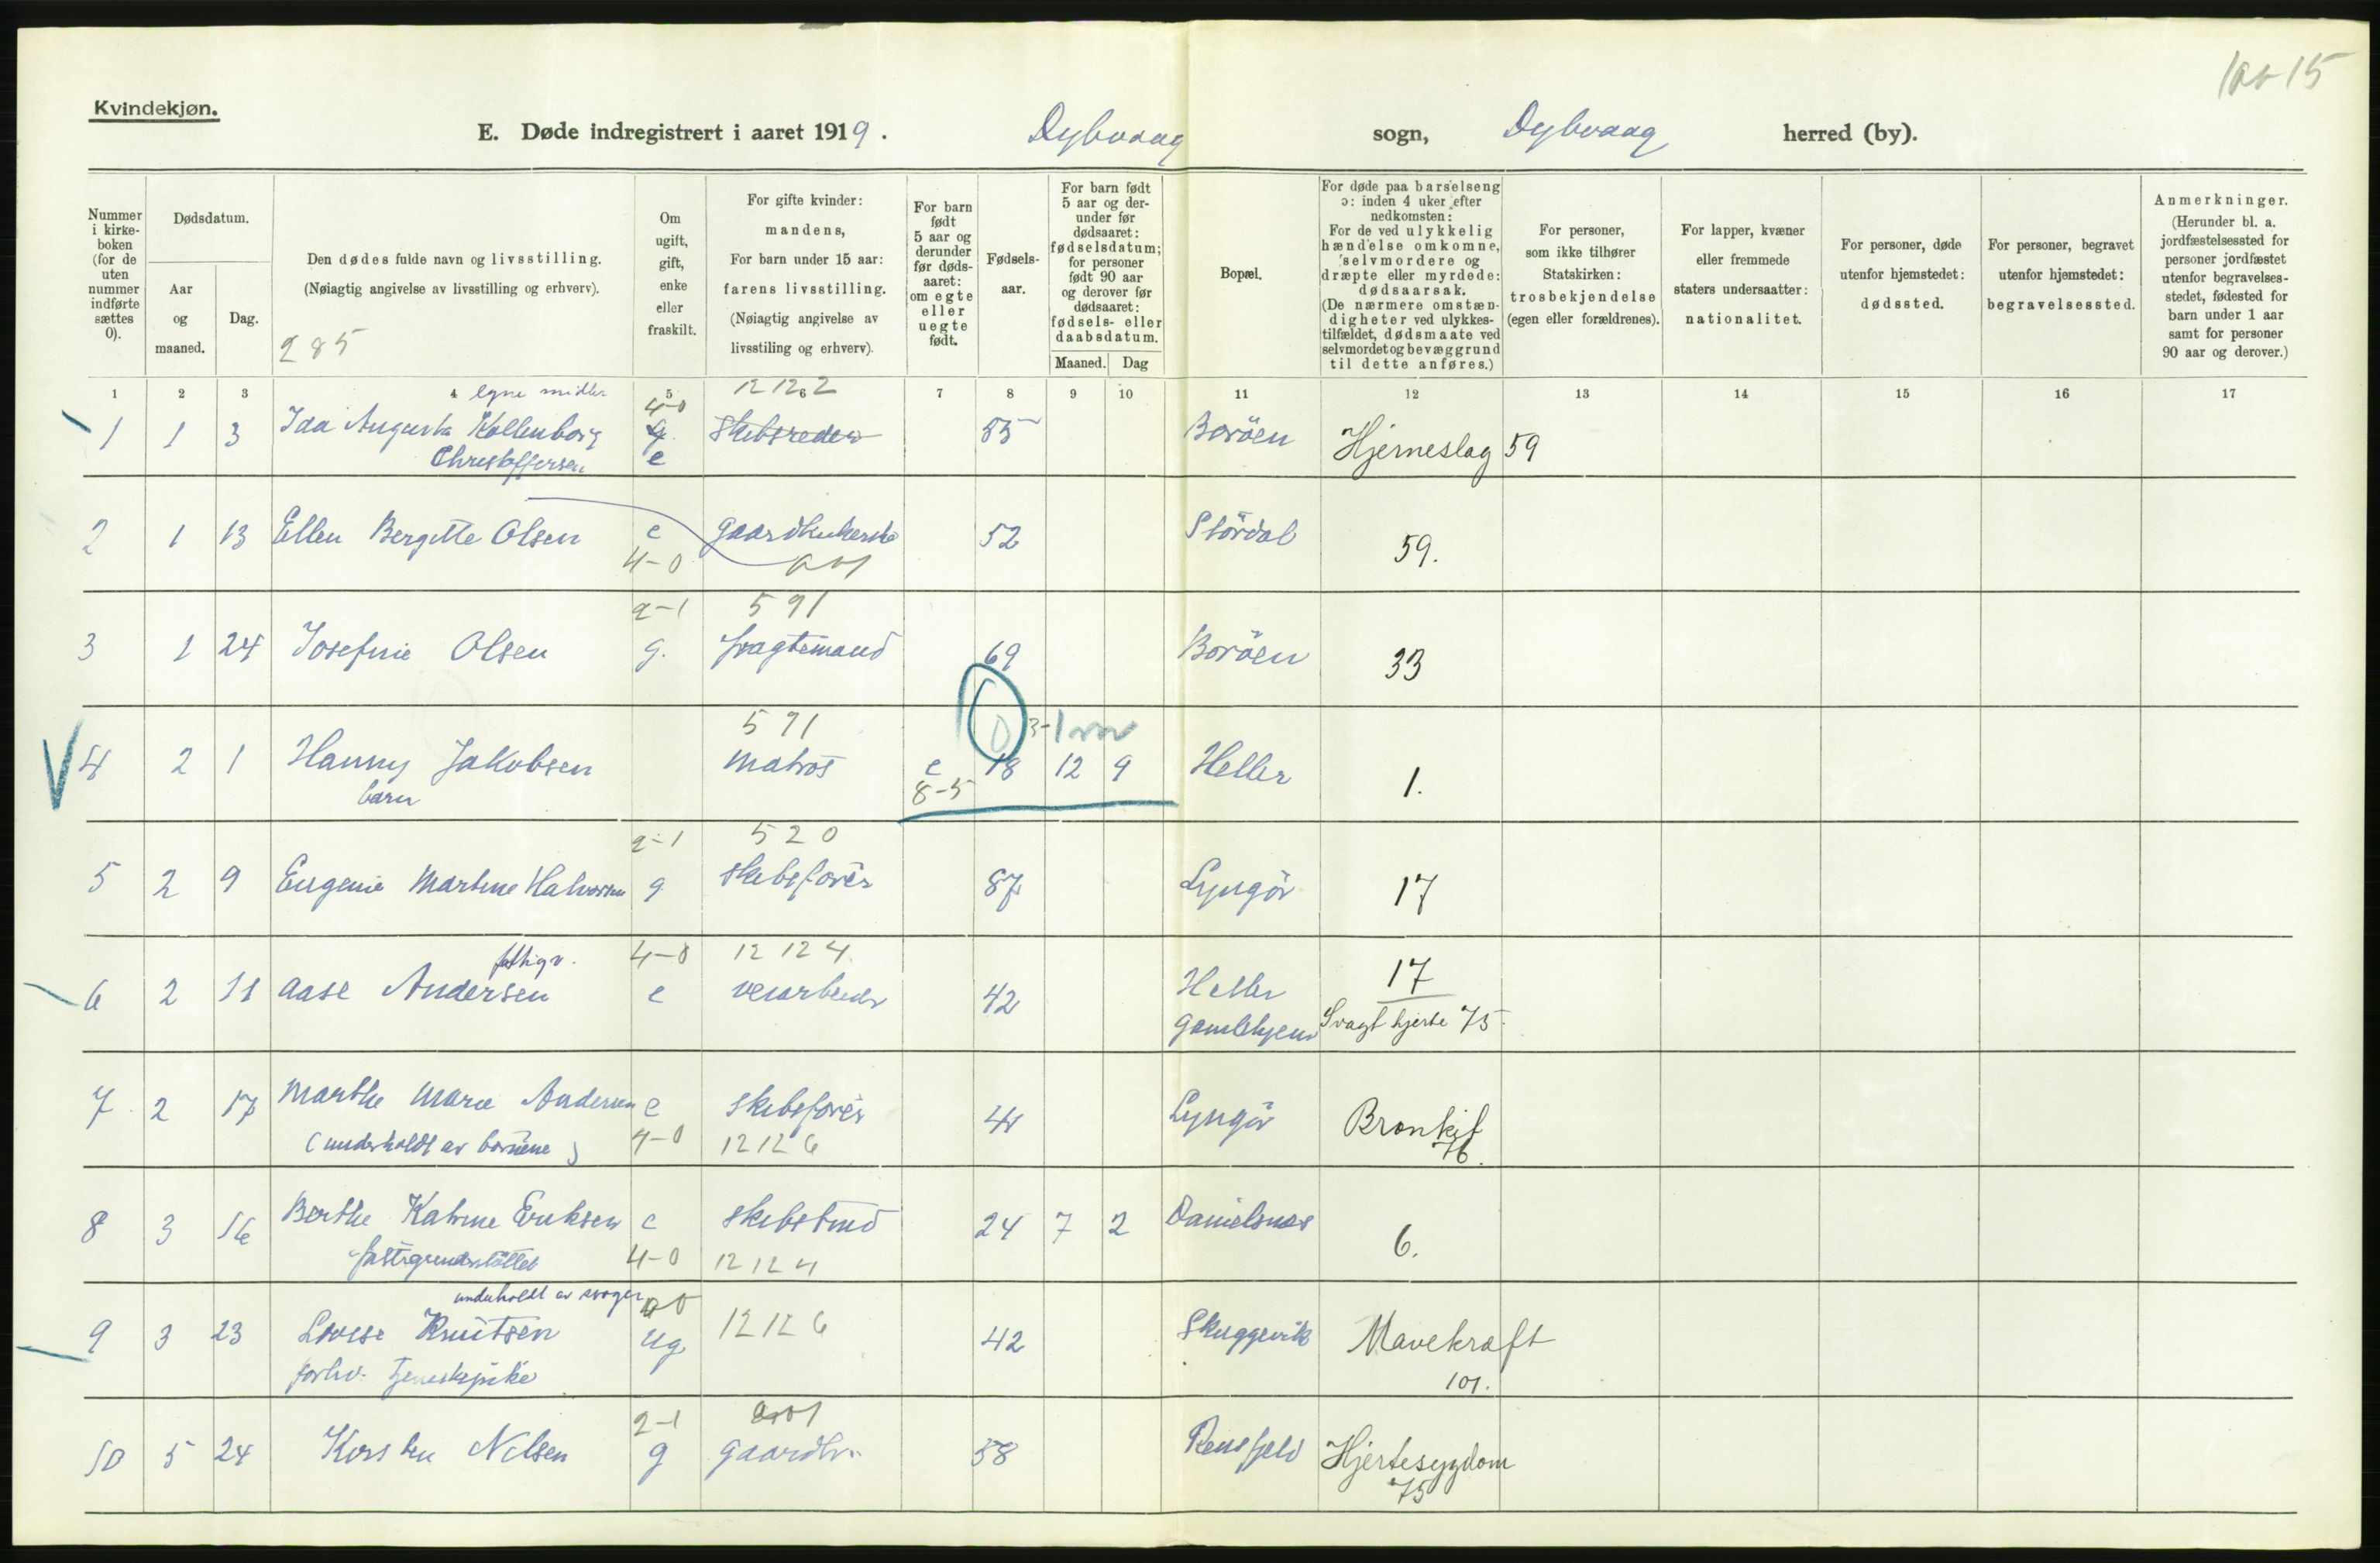 10a-15
Kvindekjøn.
E. Døde indregistrert i aaret 1919. Dybvaag sogn, Dybvaag herred (by).
Nummer i kirke-boken (for de uten nummer indførte sættes 0).
Dødsdatum.
Aar og maaned.
Dag.
Den dødes fulde navn og livsstilling.
(Nøiagtig angivelse av livsstilling og erhverv).
285
Om ugift, gift, enke eller fraskilt.
For gifte kvinder: mandens,
For barn under 15 aar: farens livsstilling.
(Nøiagtig angivelse av livsstiling og erhverv).
For barn født 5 aar og derunder før døds-aaret: om egte eller uegte født.
Fødsels-aar.
For barn født 5 aar og der-under før dødsaaret: fødselsdatum; for personer født 90 aar og derover før dødsaaret: fødsels- eller daabsdatum.
Maaned. Dag
Bopæl.
For døde paa barselseng ɔ: inden 4 uker efter nedkomsten:
For de ved ulykkelig hændelse omkomne, selvmordere og dræpte eller myrdede: dødsaarsak.
(De nærmere omstæn-digheter ved ulykkes-tilfældet, dødsmaate ved selvmordet og bevæggrund til dette anføres.)
For personer, som ikke tilhører Statskirken: trosbekjendelse (egen eller forældrenes).
For lapper, kvæner eller fremmede staters undersaatter: nationalitet.
For personer, døde utenfor hjemstedet: dødssted.
For personer, begravet utenfor hjemstedet: begravelsessted.
Anmerkninger.
(Herunder bl. a. jordfæstelsessted for personer jordfæstet utenfor begravelses-stedet, fødested for barn under 1 aar samt for personer 90 aar og derover.)
1 2 3 4 5 6 7 8 9 10 11 12 13 14 15 16 17
egne midler 4-0 12 12 2
1 1 3 Ida Augusta Kallenborg g. Skibsreder 55 Borøen Hjerneslag 59
Christoffersen e
2 1 13 Ellen Bergitte Olsen e gaardbrukerske 52 Stördal 59.
4-0
2-1 591
3 1 24 Josefine Olsen g. fragtemand 69 Boröen 33
591 0 3-1
4 2 1 Hanny Jakobsen matros e 18 12 9 Heller 1.
barn 8-5
2-1 520
5 2 9 Eugenie Martine Halvorsen g skibsförer 87 Lyngör 17
fattigv. 4-0 12 12 4
6 2 11 Aase Andersen e veiarbeider 42 Heller 17
Gamlehjem Svagt hjerte 75.
7 2 17 Marthe Marie Andersen e skibsförer 41 Lyngör Bronkit
(underholdt av barnene) 4-0 12 12 6 76.
8 3 16 Berthe Katrine Eriksen e skibstmd 24 7 2 Danielsnes 6.
fattigunderstöttet 4-0 12 12 4
underholdt av svoger
9 3 23 Lovise Knutsen ug 12 12 6 42 Skuggevik Mavekræft
forhv. tjenestepike 101.
2-1
10 5 24 Kirsten Nilsen g gaardbr. 58 Rensfjeld Hjertesygdom
75